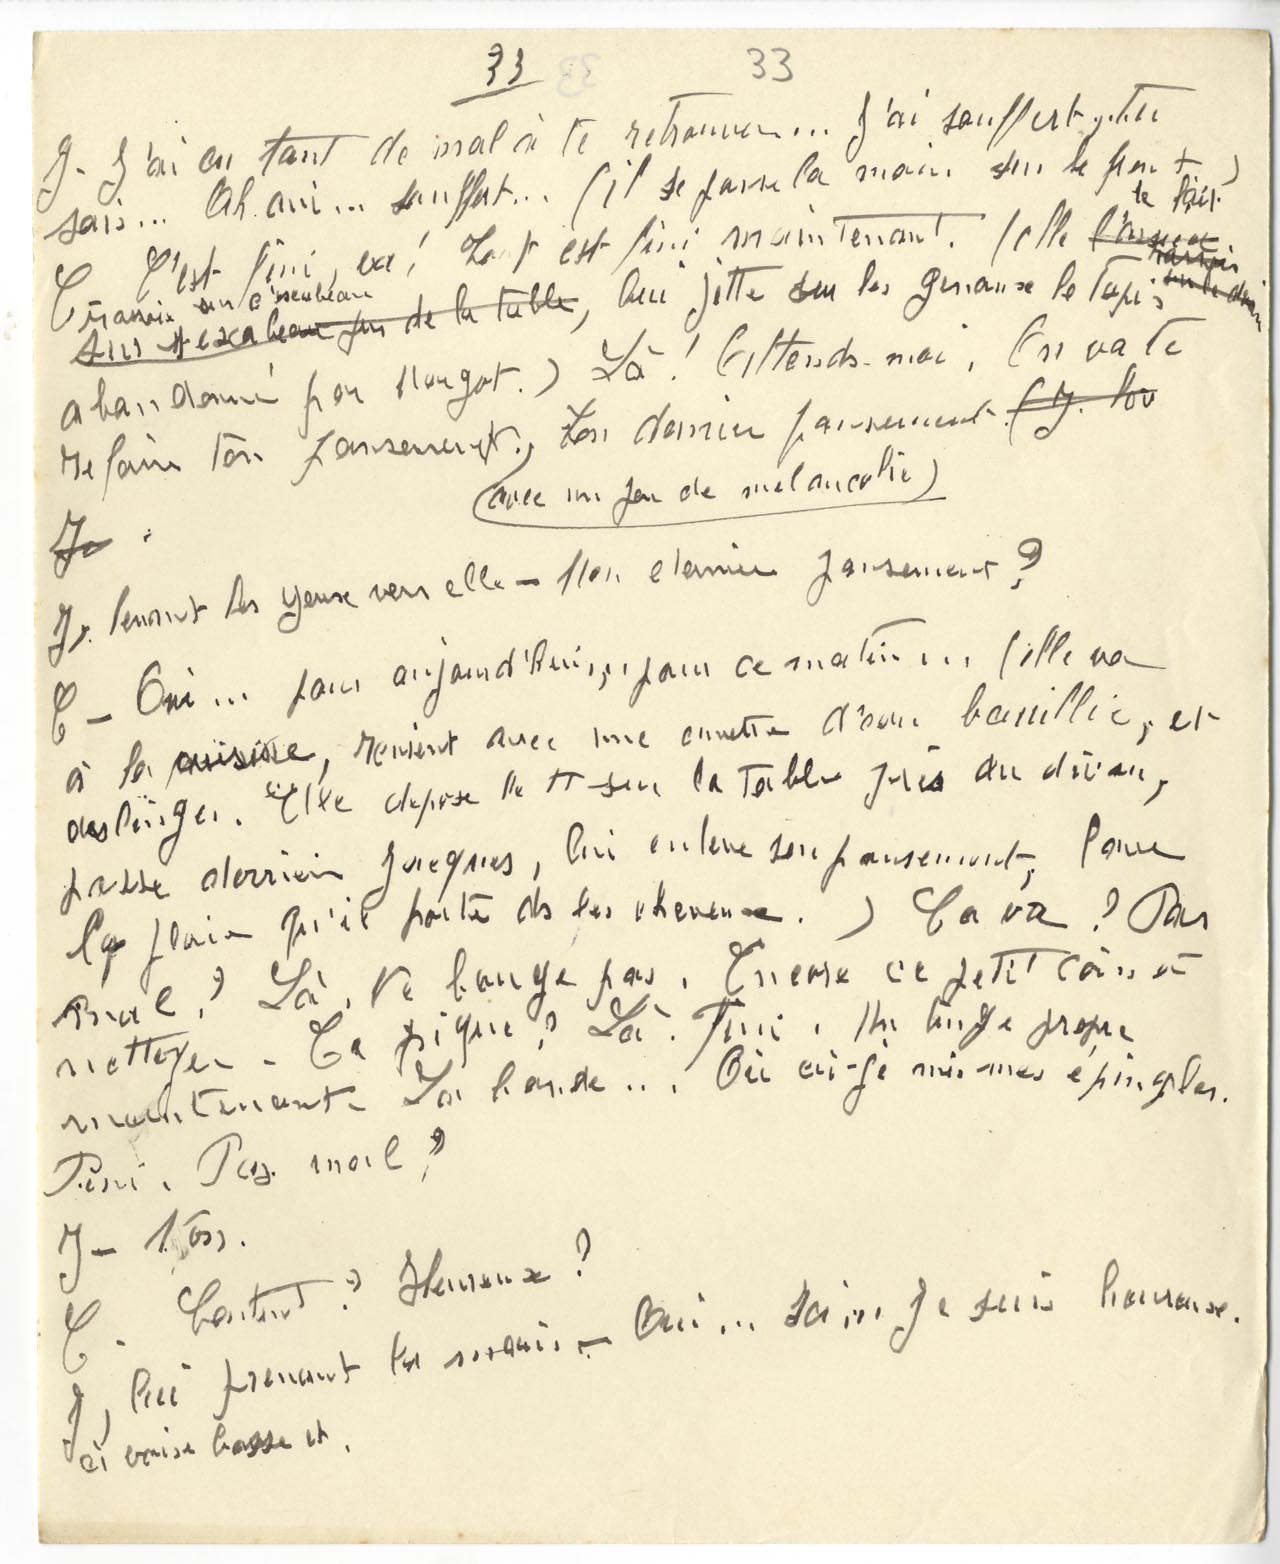 33 33
J - J'ai eu tant de mal à te retrouver... J'ai souffert, tu
sais... Ah oui... souffert... (il se passe la main sur le front)
le fait
C C'est fini, va! Tout est fini maintenant. (elle
asseoir sur l'escabeau
de la table, lui jette sur les genoux le tapis
abandonné par Margot.) Là! Attends-moi. On va te
refaire ton pansement. Ton dernier pansement. (J.
(avec un peu de mélancolie)
J.
J, levant les yeux vers elle - Mon dernier pansement?
C - Oui... pour aujourd'hui, pour ce matin... (elle va
à la cuisine, revient avec une cuvette d'eau bouillie, et
des linges. Elle dépose le tt sur la table près du divan,
passe derrière Jacques, lui enlève son pansement, lave
la plaie qu'il porte ds les cheveux.) Ca va? Pas
mal? Là. Ne bouge pas. Encore ce petit coin à
nettoyer - Ca pique? Là. Fini. Un linge propre
maintenant. La bande... Où ai-je mis mes épingles.
Fini. Pas mal?
J - Non.
C - Content? Heureux?
J, lui prenant les mains - Oui... Je suis heureux.
à voix basse et.